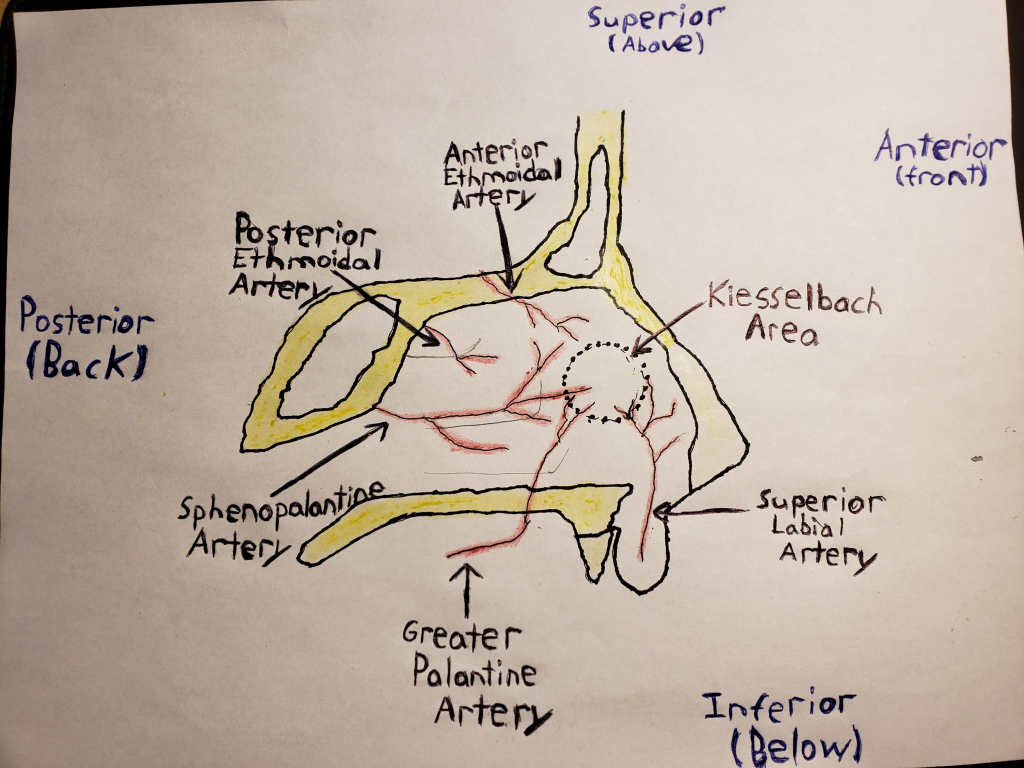 Superior
(Above)
Anterior
(front)
Anterior
Ethmoidal
Artery
Posterior
Ethmoidal
Artery
Kiesselbach
Area
Posterior
(Back)
Sphenopalantine
Artery
Superior
Labial
Artery
Greater
Palantine
Artery
Inferior
(Below)